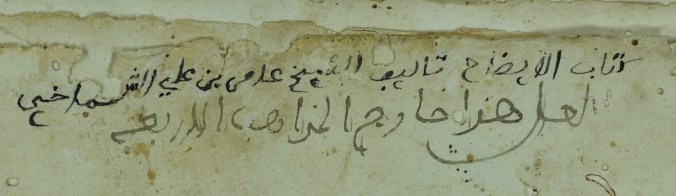 كتاب الايضاح تاليف الشيخ عامر بن علي الشماخي
لعل هذا خارج المذاهب الاربعه